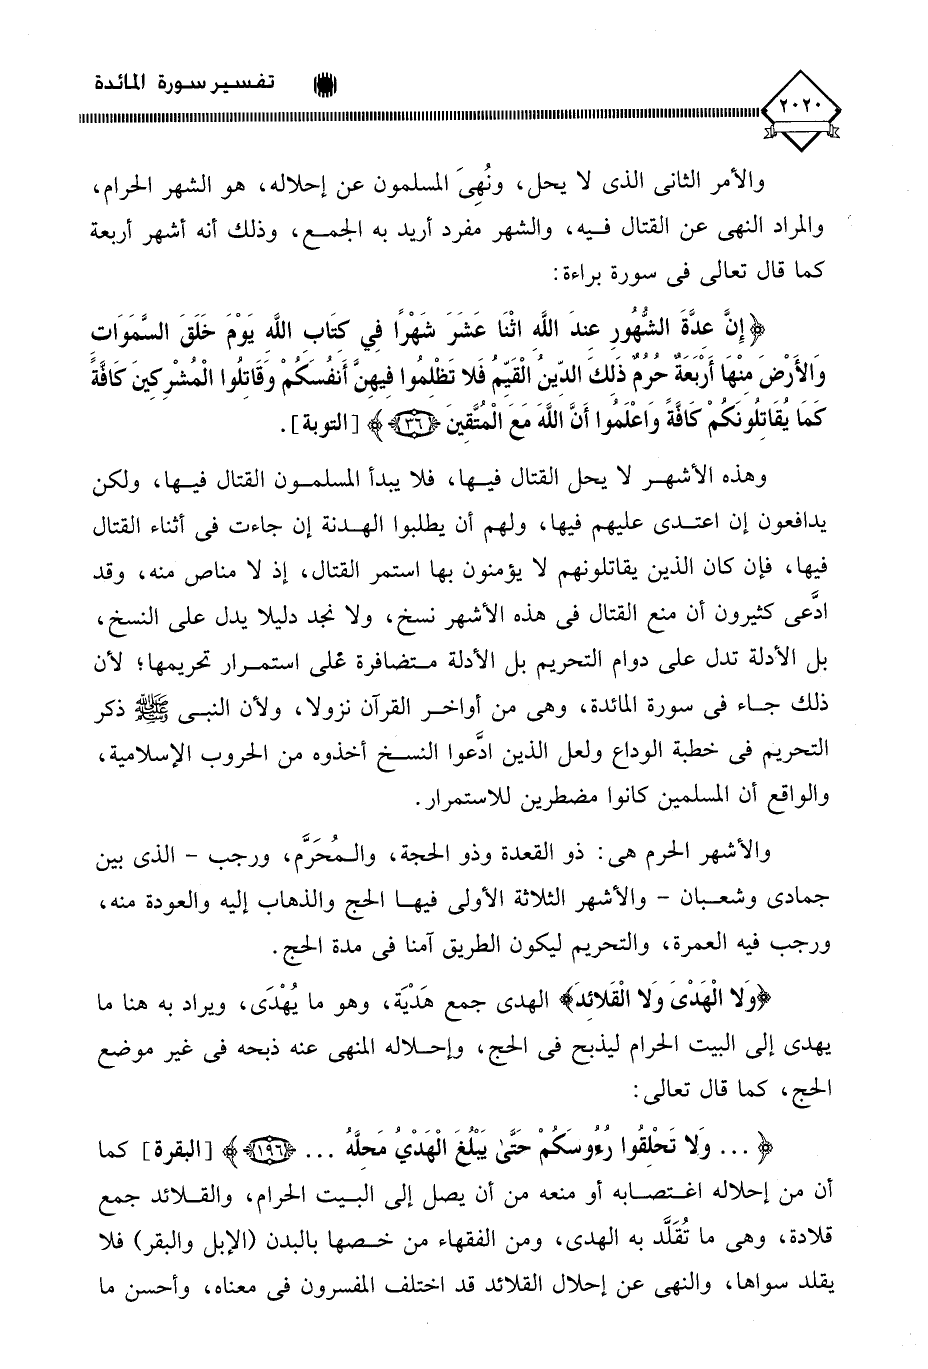 تفسير سورة المائدة
٢٠٢٠
والأمر الثانى الذى لا يحل، ونُهِىَ المسلمون عن إحلاله، هو الشهر الحرام،
والمراد النهى عن القتال فيه، والشهر مفرد أريد به الجمع، وذلك أنه أشهر أربعة
كما قال تعالى فى سورة براءة:
﴿إِنَّ عِدَّةَ الشُّهُورِ عِندَ اللَّهِ اثْنَا عَشَرَ شَهْرًا فِي كِتَابِ اللَّهِ يَوْمَ خَلَقَ السَّمَوَاتِ
وَالأَرْضَ مِنْهَا أَرْبَعَةٌ حُرُمٌ ذَلِكَ الدِّينُ الْقَيِّمُ فَلا تَظْلِمُوا فِيهِنَّ أَنفُسَكُمْ وَقَاتِلُوا الْمُشْرِكِينَ كَافَّةً
كَمَا يُقَاتِلُونَكُمْ كَافَّةً وَاعْلَمُوا أَنَّ اللَّهَ مَعَ الْمُتَّقِينَ ﴿٣٦﴾﴾ [التوبة].
وهذه الأشهر لا يحل القتال فيها، فلا يبدأ المسلمون القتال فيها، ولكن
يدافعون إن اعتدى عليهم فيها، ولهم أن يطلبوا الهدنة إن جاءت فى أثناء القتال
فيها، فإن كان الذين يقاتلونهم لا يؤمنون بها استمر القتال، إذ لا مناص منه، وقد
ادَّعى كثيرون أن منع القتال فى هذه الأشهر نسخ، ولا نجد دليلا يدل على النسخ،
بل الأدلة تدل على دوام التحريم بل الأدلة متضافرة على استمرار تحريمها؛ لأن
ذلك جاء فى سورة المائدة، وهى من أواخر القرآن نزولا، ولأن النبى ﷺ ذكر
التحريم فى خطبة الوداع ولعل الذين ادَّعوا النسخ أخذوه من الحروب الإسلامية،
والواقع أن المسلمين كانوا مضطرين للاستمرار.
والأشهر الحرم هى: ذو القعدة وذو الحجة، والمُحَرَّم، ورجب - الذى بين
جمادى وشعبان - والأشهر الثلاثة الأولى فيها الحج والذهاب إليه والعودة منه،
ورجب فيه العمرة، والتحريم ليكون الطريق آمنا فى مدة الحج.
﴿وَلا الْهَدْىَ وَلا الْقَلائِدَ﴾ الهدى جمع هَدْيَة، وهو ما يُهْدَى، ويراد به هنا ما
يهدى إلى البيت الحرام ليذبح فى الحج، وإحلاله المنهى عنه ذبحه فى غير موضع
الحج، كما قال تعالى:
﴿... وَلا تَحْلِقُوا رُءُوسَكُمْ حَتَّىٰ يَبْلُغَ الْهَدْيُ مَحِلَّهُ ... ﴿١٩٦﴾﴾ [البقرة] كما
أن من إحلاله اغتصابه أو منعه من أن يصل إلى البيت الحرام، والقلائد جمع
قلادة، وهى ما تُقَلَّد به الهدى، ومن الفقهاء من خصها بالبدن (الإبل والبقر) فلا
يقلد سواها، والنهى عن إحلال القلائد قد اختلف المفسرون فى معناه، وأحسن ما